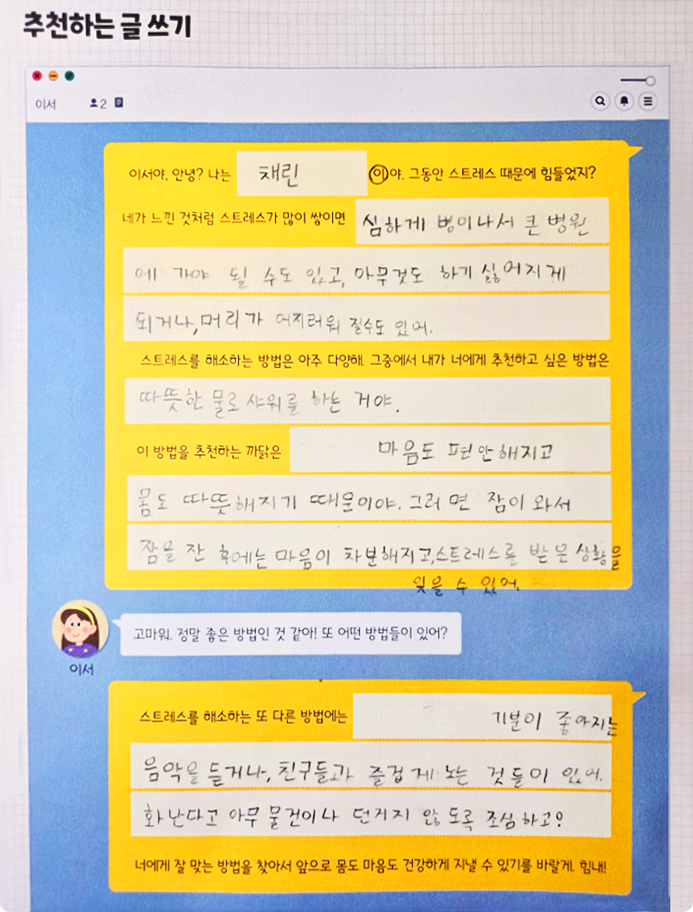 추천하는 글 쓰기
이서 2
이서야, 안녕? 나는 채린 이야. 그동안 스트레스 때문에 힘들었지?
네가 느낀 것처럼 스트레스가 많이 쌓이면 심하게 병이나서 큰 병원
에 가야 될 수도 있고, 아무것도 하기 싫어지게
되거나, 머리가 어지러워 질수도 있어.
스트레스를 해소하는 방법은 아주 다양해. 그중에서 내가 너에게 추천하고 싶은 방법은
따뜻한 물로 샤워를 하는 거야.
이 방법을 추천하는 까닭은 마음도 편안해지고
몸도 따뜻해지기 때문이야. 그러면 잠이 와서
잠을 잔 후에는 마음이 차분해지고, 스트레스를 받은 상황을
잊을 수 있어.
고마워. 정말 좋은 방법인 것 같아! 또 어떤 방법들이 있어?
이서
스트레스를 해소하는 또 다른 방법에는 기분이 좋아지는
음악을 듣거나, 친구들과 즐겁게 노는 것들이 있어.
화난다고 아무 물건이나 던지지 않도록 조심하고?
너에게 잘 맞는 방법을 찾아서 앞으로 몸도 마음도 건강하게 지낼 수 있기를 바랄게. 힘내!